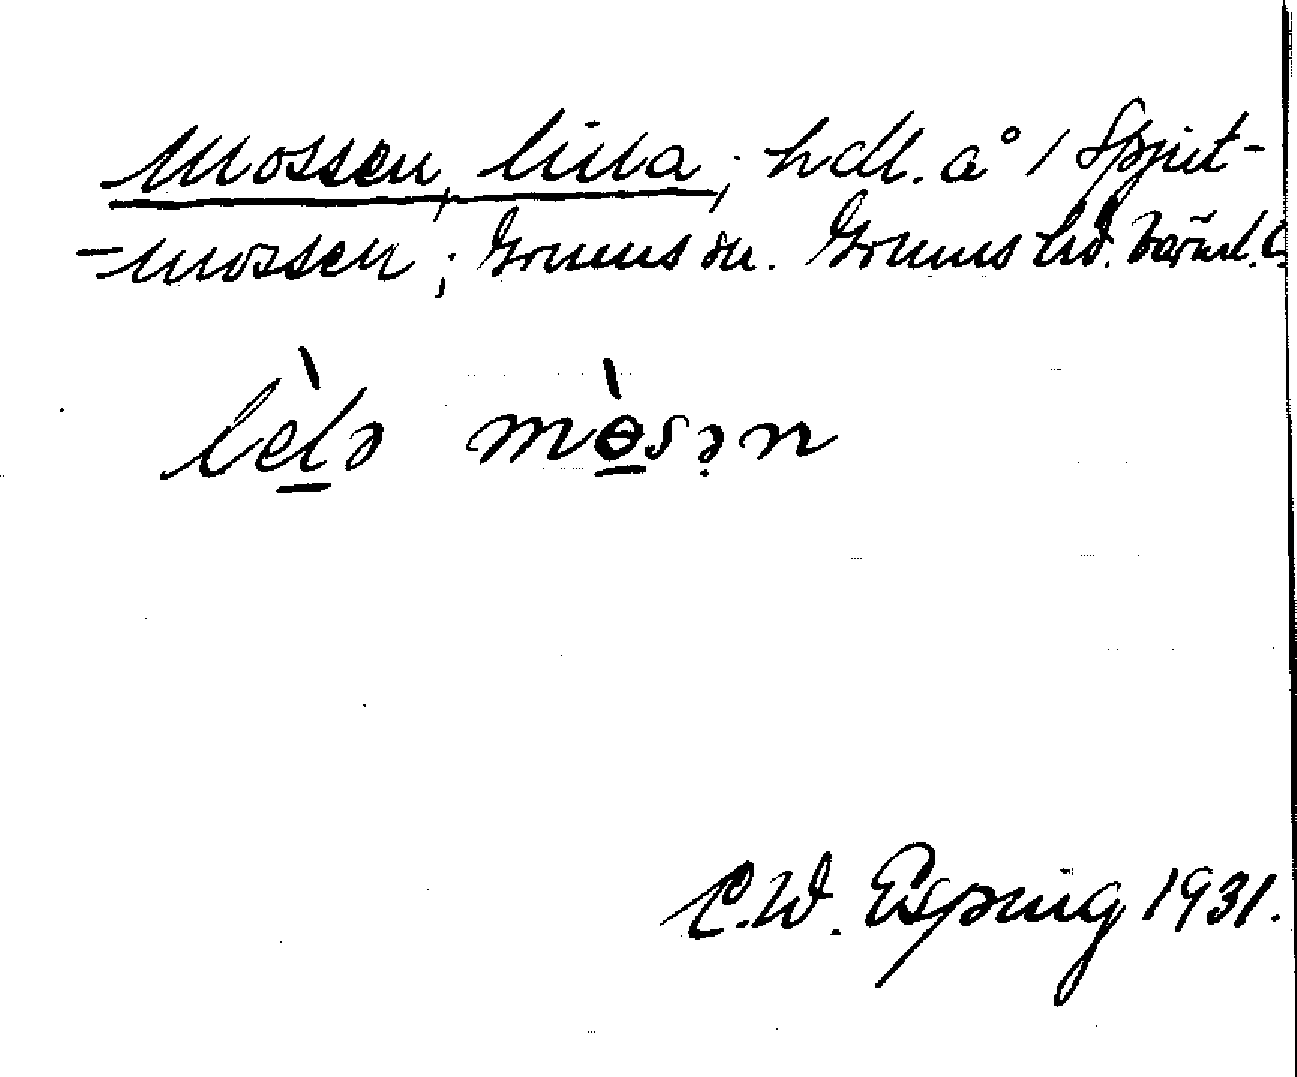 Mossen, lilla; hdl. å / Spjut-
-mossen; Grums sn. Grums hd. Värml. l.
lèlə mèsən
C.W. Esping 1931.